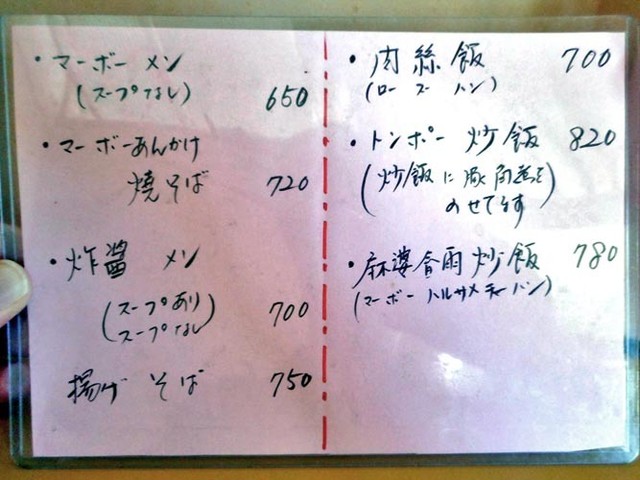 ・マーボー メン
(スープなし) 650
・マーボーあんかけ
焼そば 720
・炸醤 メン
(スープあり
スープなし) 700
揚げ そば 750
・肉絲飯 700
(ロースーハン)
・トンポー 炒飯 820
(炒飯に豚角煮を
のせてます)
・麻婆春雨炒飯 780
(マーボーハルサメチャーハン)